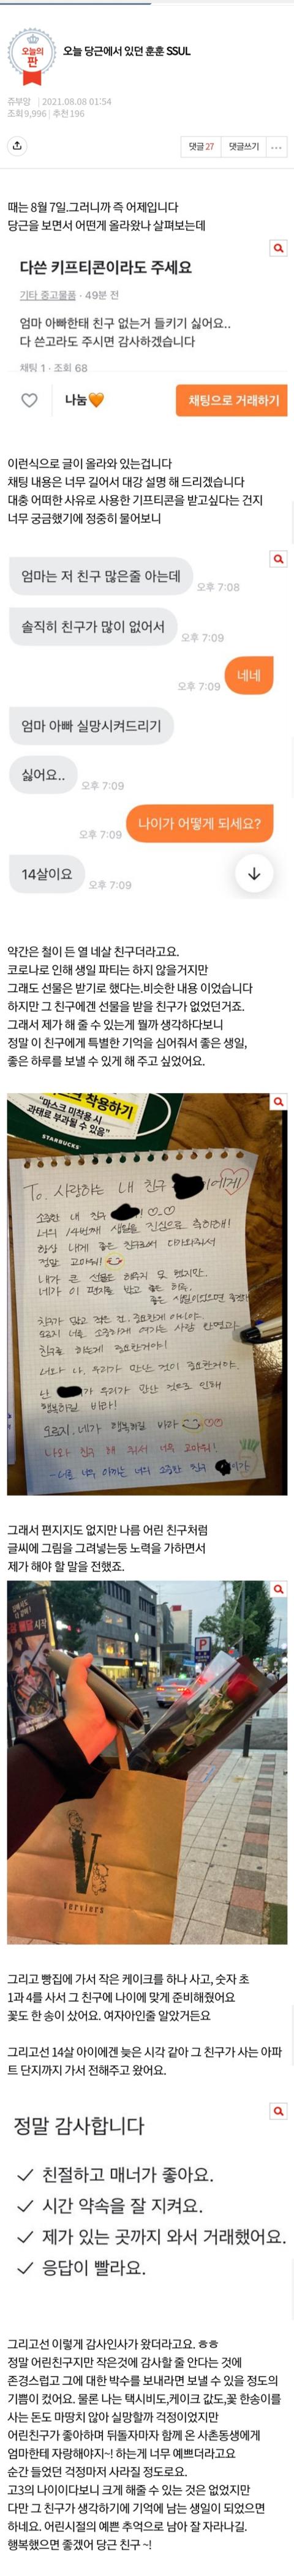 오늘의
판
오늘 당근에서 있던 훈훈 SSUL
쥬부앙 | 2021.08.08 01:54
조회 9,996 | 추천 196
댓글 27 댓글쓰기 ...
때는 8월 7일.그러니까 즉 어제입니다
당근을 보면서 어떤게 올라왔나 살펴보는데
다쓴 키프티콘이라도 주세요
기타 중고물품 · 49분 전
엄마 아빠한태 친구 없는거 들키기 싫어요..
다 쓴고라도 주시면 감사하겠습니다
채팅 1 · 조회 68
나눔🧡 채팅으로 거래하기
이런식으로 글이 올라와 있는겁니다
채팅 내용은 너무 길어서 대강 설명 해 드리겠습니다
대충 어떠한 사유로 사용한 기프티콘을 받고싶다는 건지
너무 궁금했기에 정중히 물어보니
엄마는 저 친구 많은줄 아는데
오후 7:08
솔직히 친구가 많이 없어서
오후 7:09
네네
오후 7:09
엄마 아빠 실망시켜드리기
싫어요..
오후 7:09
나이가 어떻게 되세요?
오후 7:09
14살이요
오후 7:09
약간은 철이 든 열 네살 친구더라고요.
코로나로 인해 생일 파티는 하지 않을거지만
그래도 선물은 받기로 했다는.비슷한 내용 이었습니다
하지만 그 친구에겐 선물을 받을 친구가 없었던거죠.
그래서 제가 해 줄 수 있는게 뭘까 생각하다보니
정말 이 친구에게 특별한 기억을 심어줘서 좋은 생일,
좋은 하루를 보낼 수 있게 해 주고 싶었어요.
마스크 착용하기
"마스크 미착용 시
과태료 부과될 수 있음"
STARBUCKS
To. 사랑하는 내 친구 이에게!
소중한 내 친구
너의 14번째 생일을 진심으로 축하해!
항상 내게 좋은 친구로써 다가와줘서
정말 고마워!
내가 큰 선물은 해주지 못 했지만.
네가 이 편지를 받고 좋은 하루,
좋은 생일이었으면 좋겠어
친구가 많고 적은 건 중요한게 아니야.
친구를 하는게 중요한거야!
너와 나, 우리가 만난 것이 중요한거야.
난 가 우리가 만난 것으로 인해
행복하길 바라!
오로지. 네가 행복하길 바라
나와 친구 해 줘서 너무 고마워!
-너를 너무 아끼는 너의 소중한 친구 가-
그래서 편지지도 없지만 나름 어린 친구처럼
글씨에 그림을 그려넣는둥 노력을 가하면서
제가 해야 할 말을 전했죠.
P
V
그리고 빵집에 가서 작은 케이크를 하나 사고, 숫자 초
1과 4를 사서 그 친구에 나이에 맞게 준비해줬어요
꽃도 한 송이 샀어요. 여자아인줄 알았거든요
그리고선 14살 아이에겐 늦은 시각 같아 그 친구가 사는 아파
트 단지까지 가서 전해주고 왔어요.
정말 감사합니다
✓ 친절하고 매너가 좋아요.
✓ 시간 약속을 잘 지켜요.
✓ 제가 있는 곳까지 와서 거래했어요.
✓ 응답이 빨라요.
그리고선 이렇게 감사인사가 왔더라고요. ㅎㅎ
정말 어린친구지만 작은것에 감사할 줄 안다는 것에
존경스럽고 그에 대한 박수를 보내라면 보낼 수 있을 정도의
기쁨이 컸어요. 물론 나는 택시비도,케이크 값도,꽃 한송이를
사는 돈도 마땅히 않아 실망할까 걱정이었지만
어린친구가 좋아하며 뒤돌자마자 함께 온 사촌동생에게
엄마한테 자랑해야지~! 하는게 너무 예쁘더라고요
순간 들었던 걱정마저 사라질 정도로요.
고3의 나이이다보니 크게 해줄 수 있는 것은 없었지만
다만 그 친구가 생각하기에 기억에 남는 생일이 되었으면
하네요. 어린시절의 예쁜 추억으로 남아 잘 자라나길.
행복했으면 좋겠어 당근 친구 ~!